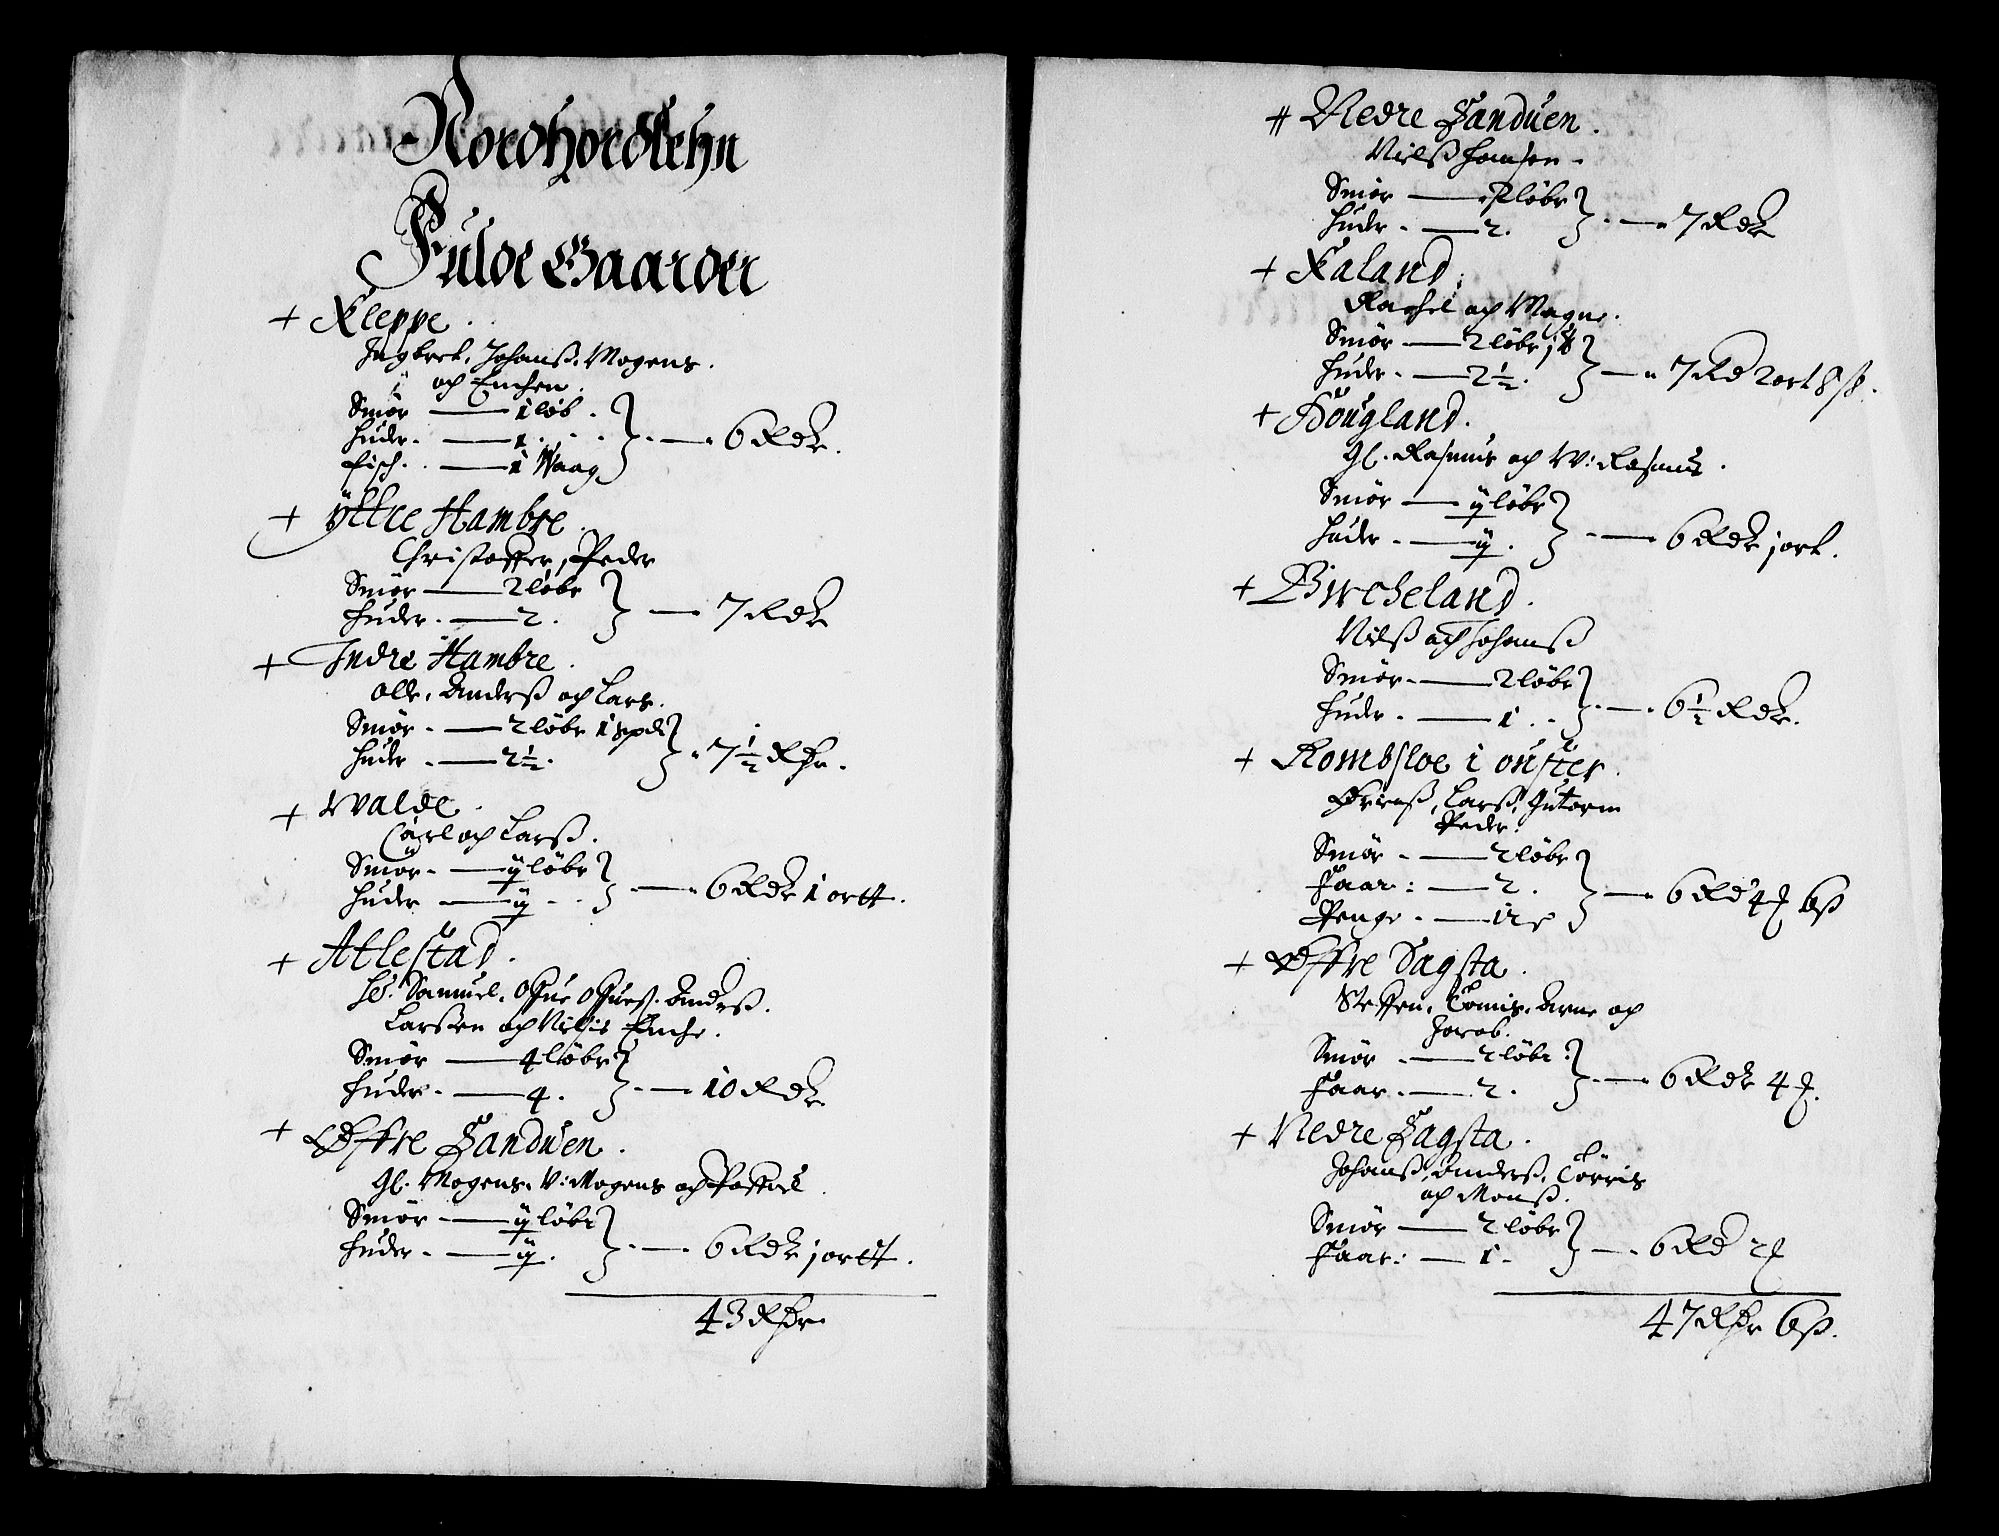 Nordhordlehn
Fulde Gaarder
+ Kleppe .
Ingbret, Johanß, Mogens .
och Enchen .
Smör —— 1 löb .
Huder . —— 1 . . . } . — . 6 Rdr .
Fisch . . —— 1 Waag
+ Ÿttre Hambre .
Christoffer, Peder
Smör —— 2 löbr
Huder . —— 2 . } — 7 Rdr
+ Indre Hambre .
Olle, Anderß och Lars .
Smör . —— 2 löbr 1 spd
Huder . —— 2 ½ . } . 7 ½ Rdr .
+ Walde .
Carl och Larß .
Smör . —— ij löbr
Huder —— ij . . } . — . 6 Rdr 1 ortt .
+ Atlestad .
Hr. Samuel, Offue Offuesß. Anderß .
Larßen och Nielsis Enche .
Smör —— 4 löbr
Huder . —— 4 . } . — 10 Rdr
+ Öffre Sanduen .
Gl. Mogens, V: Mogens och Poffuel .
Smör . —— ij löbr
Huder . —— ij . } . — . 6 Rdr j ortt .
43 Rdr
# Nedre Sanduen .
Nielß Hansen .
Smör —— 2 löbr
Huder . —— 2 . } . — . 7 Rdr
+ Faland .
Rachel och Magne .
Smör —— 2 löbr j ℔
Huder . —— 2 ½ . } — . 7 Rd 2 ort 8 ß .
+ Hougland .
Gl. Rasmus och W: Rasmus .
Smör —— ij löbr
Huder . —— ij . } . — 6 Rdr j ort .
+ Bircheland .
Nielß och Johanß
Smör . —— 2 löbr
Huder . —— 1 . . } . — . 6 ½ Rdr .
+ Rombsloe i ouster .
Larß, Gutorm
Peder .
Smör . —— 2 löbr
Faar : —— 2 . } — . 6 Rd 4 ꝭ 6 ß
Penge . —— 12 ß
+ Öffre Sagsta .
Steffen, Tomis, Arne och
Jacob .
Smör . —— 2 löbr :
Faar . —— 2 . } . — . 6 Rdr 4 ꝭ .
+ Nedre Sagsta .
Johanß, Anderß, Törris
och Monß .
Smör —— 2 löbr
Faar : — 1 . } — . 6 Rd 2 ꝭ
47 Rdr 6 ß .